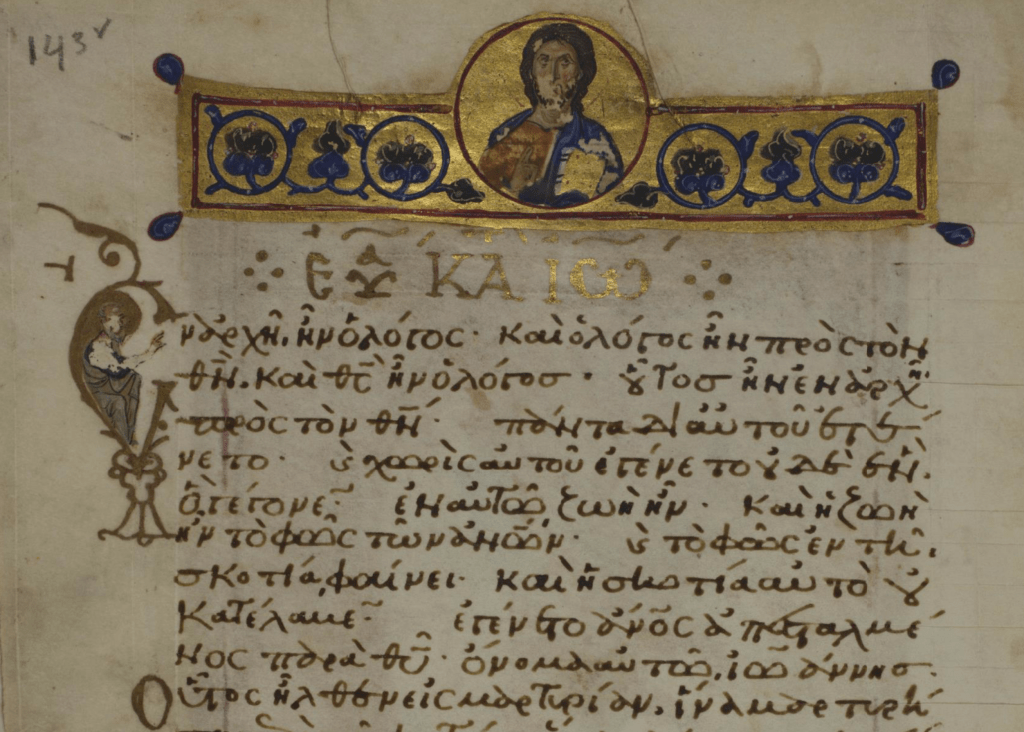 143v
ΕΥ ΚΑ ΙΩ
Ἐν ἀρχῆ, ἦν ὁ λόγος· καὶ ὁ λόγος ἦν πρὸς τὸν
θν̅. καὶ θς̅ ἦν ὁ λόγος· οὗτος ἦν ἐν ἀρχῆ
πρὸς τὸν θν̅· πάντα δι αὐτοῦ ἐγέ
νετο· καὶ χωρὶς αὐτοῦ ἐγένετο οὐδὲ ἓν.
ὃ γέγονε̅· ἐν αὐτῶ ζωὴ ἦν· καὶ ἡ ζωὴ
ἦν τὸ φῶς τῶν ἀνων̅· καὶ τὸ φῶς ἐν τῆ
σκοτία, φαίνει· καὶ ἡ σκοτία αὐτὸ οὐ
κατέλαβε̅· ἐγένετο ἀνος̅ ἀπεσταλμέ
νος παρὰ θυ̅· ὄνομα αὐτῶ, ἰωάννης.
Οὗτος ἦλθεν εἰς μαρτυρίαν, ἵνα μαρτυρή